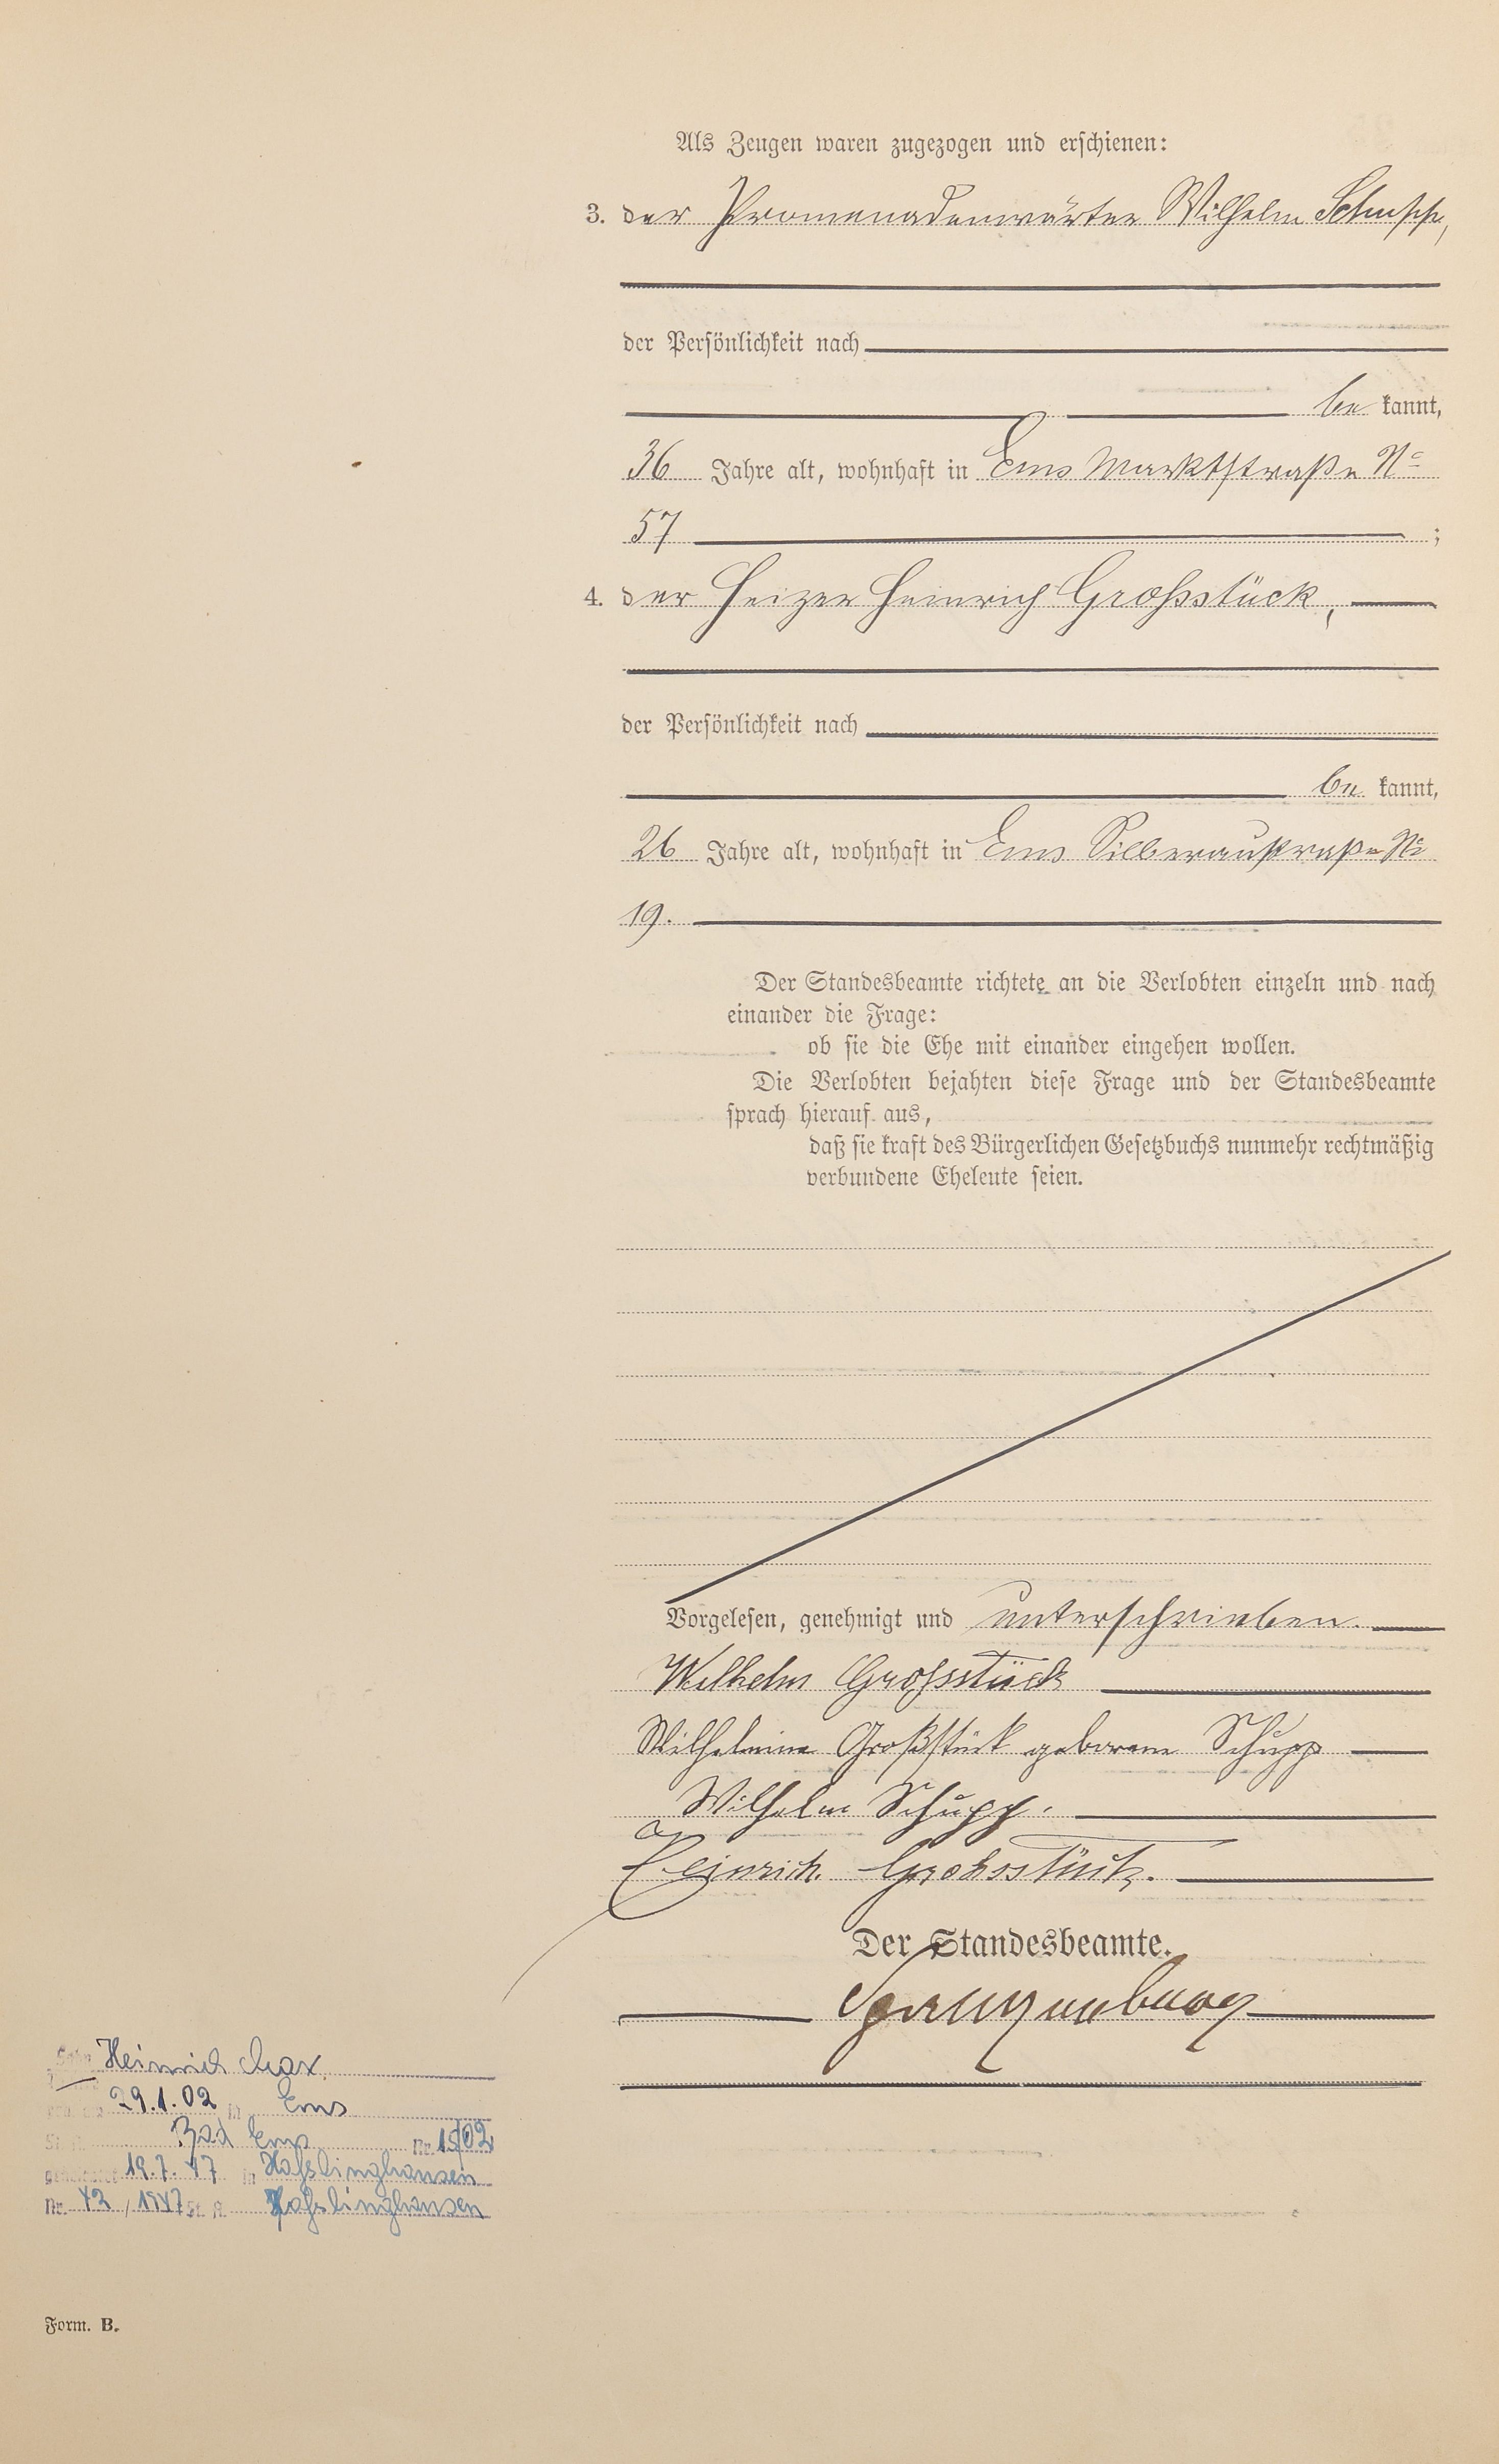 Als Zeugen waren zugezogen und erschienen:
3. der Promenadenwärter Wilhelm Schupp,
der Persönlichkeit nach
be kannt,
36 Jahre alt, wohnhaft in Ems Marktstraße No
57 ;
4. der Heizer Heinrich Großstück,
der Persönlichkeit nach
be kannt,
26 Jahre alt, wohnhaft in Ems Silberaustraße No
19.
Der Standesbeamte richtete an die Verlobten einzeln und nach
einander die Frage:
ob sie die Ehe mit einander eingehen wollen.
Die Verlobten bejahten diese Frage und der Standesbeamte
sprach hierauf aus,
daß sie kraft des Bürgerlichen Gesetzbuchs nunmehr rechtmäßig
verbundene Eheleute seien.
Vorgelesen, genehmigt und unterschrieben.
Wilhelm Großstück
Wilhelmine Großstück geborene Schupp
Wilhelm Schupp.
Heinrich Grohsstück.
Der Standesbeamte.
Spangenberg
Heinrich Max
29.1.02 in Ems
Bad Ems Nr. 15/02
19.7.47 in Haßlinghausen
Nr. 42/1947 St. A. Haßlinghausen
Form. B.